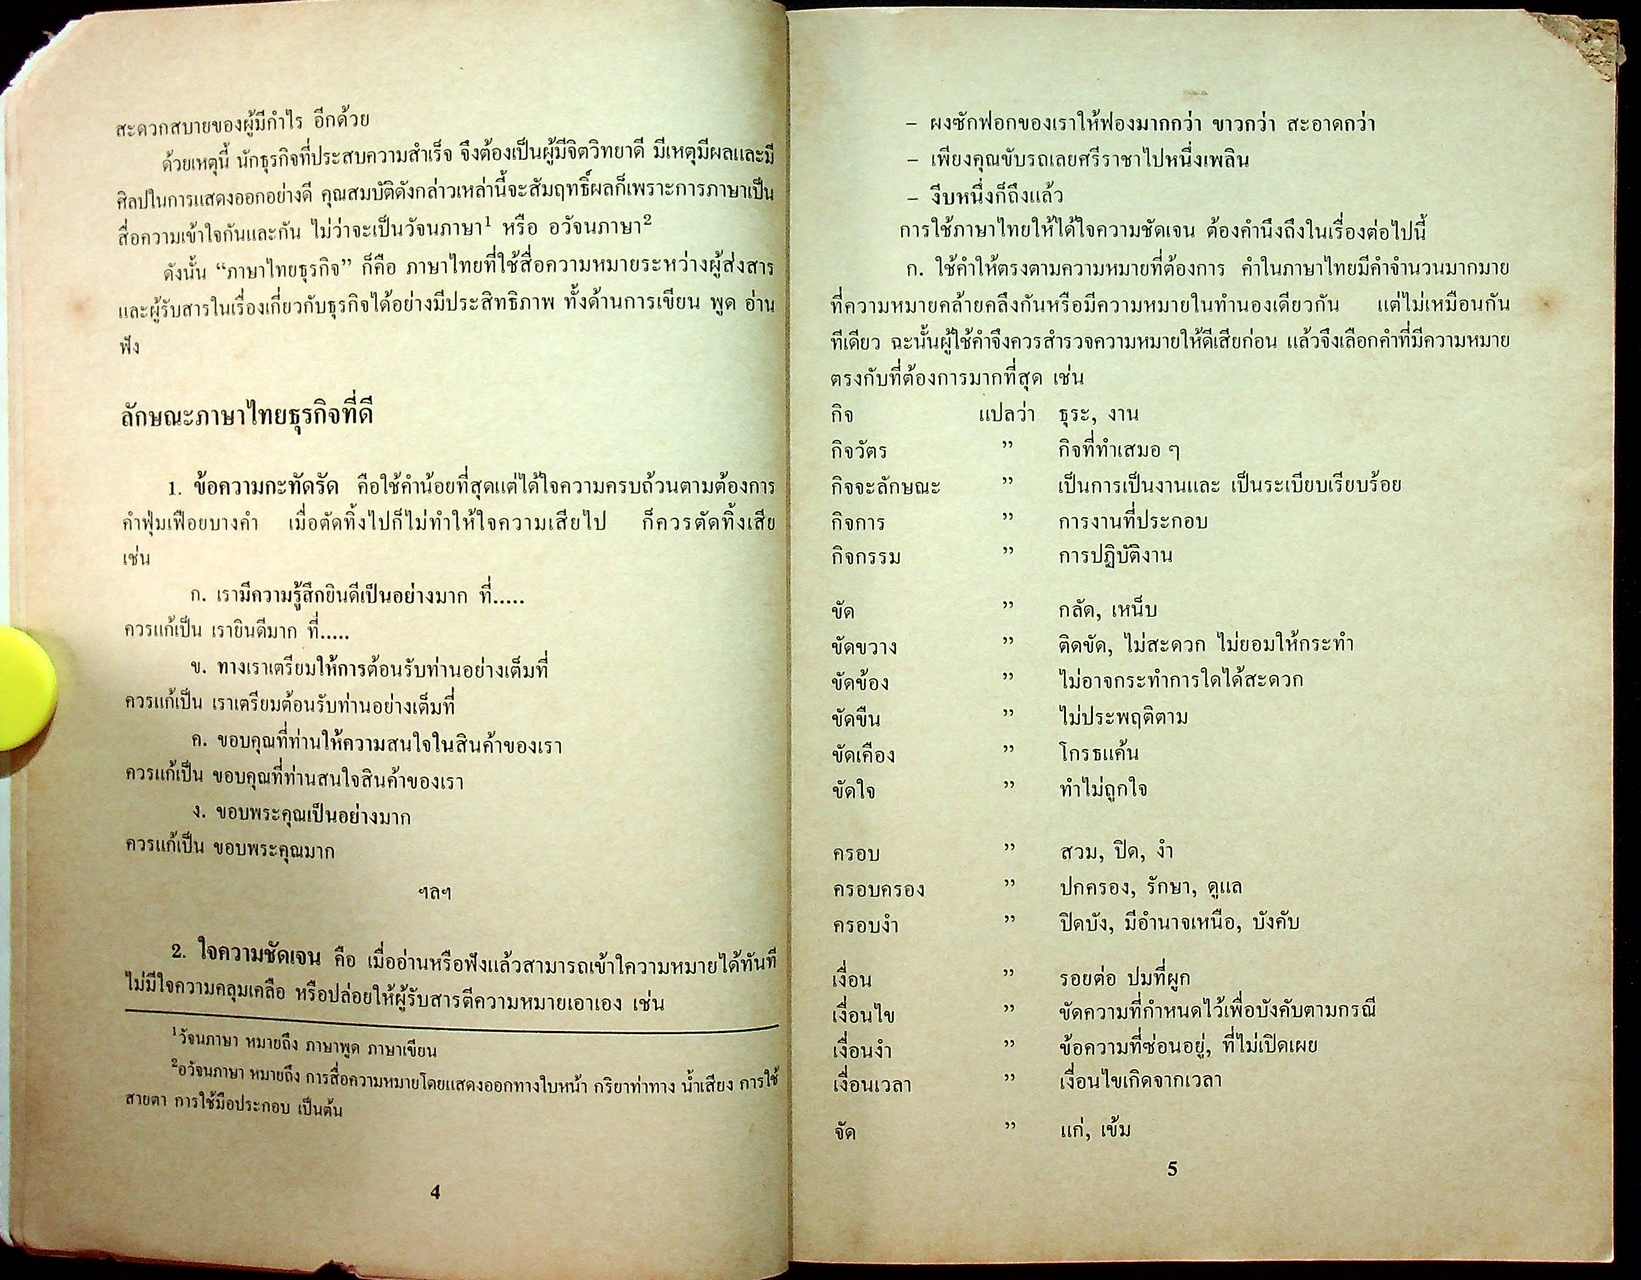 สะดวกสบายของผู้มีกำไร อีกด้วย
ด้วยเหตุนี้ นักธุรกิจที่ประสบความสำเร็จ จึงต้องเป็นผู้มีจิตวิทยาดี มีเหตุมีผลและมี
ศิลปในการแสดงออกอย่างดี คุณสมบัติดังกล่าวเหล่านี้จะสัมฤทธิ์ผลก็เพราะการภาษาเป็น
สื่อความเข้าใจกันและกัน ไม่ว่าจะเป็นวัจนภาษา¹ หรือ อวัจนภาษา²
ดังนั้น “ภาษาไทยธุรกิจ” ก็คือ ภาษาไทยที่ใช้สื่อความหมายระหว่างผู้ส่งสาร
และผู้รับสารในเรื่องเกี่ยวกับธุรกิจได้อย่างมีประสิทธิภาพ ทั้งด้านการเขียน พูด อ่าน
ฟัง
ลักษณะภาษาไทยธุรกิจที่ดี
1. ข้อความกะทัดรัด คือใช้คำน้อยที่สุดแต่ได้ใจความครบถ้วนตามต้องการ
คำฟุ่มเฟือยบางคำ เมื่อตัดทิ้งไปก็ไม่ทำให้ใจความเสียไป ก็ควรตัดทิ้งเสีย
เช่น
ก. เรามีความรู้สึกยินดีเป็นอย่างมาก ที่.....
ควรแก้เป็น เรายินดีมาก ที่.....
ข. ทางเราเตรียมให้การต้อนรับท่านอย่างเต็มที่
ควรแก้เป็น เราเตรียมต้อนรับท่านอย่างเต็มที่
ค. ขอบคุณที่ท่านให้ความสนใจในสินค้าของเรา
ควรแก้เป็น ขอบคุณที่ท่านสนใจสินค้าของเรา
ง. ขอบพระคุณเป็นอย่างมาก
ควรแก้เป็น ขอบพระคุณมาก
ฯลฯ
2. ใจความชัดเจน คือ เมื่ออ่านหรือฟังแล้วสามารถเข้าใความหมายได้ทันที
ไม่มีใจความคลุมเคลือ หรือปล่อยให้ผู้รับสารตีความหมายเอาเอง เช่น
¹วัจนภาษา หมายถึง ภาษาพูด ภาษาเขียน
²อวัจนภาษา หมายถึง การสื่อความหมายโดยแสดงออกทางใบหน้า กริยาท่าทาง น้ำเสียง การใช้
สายตา การใช้มือประกอบ เป็นต้น
4
– ผงซักฟอกของเราให้ฟองมากกว่า ขาวกว่า สะอาดกว่า
– เพียงคุณขับรถเลยศรีราชาไปหนึ่งเพลิน
– งีบหนึ่งก็ถึงแล้ว
การใช้ภาษาไทยให้ได้ใจความชัดเจน ต้องคำนึงถึงในเรื่องต่อไปนี้
ก. ใช้คำให้ตรงตามความหมายที่ต้องการ คำในภาษาไทยมีคำจำนวนมากมาย
ที่ความหมายคล้ายคลึงกันหรือมีความหมายในทำนองเดียวกัน แต่ไม่เหมือนกัน
ทีเดียว ฉะนั้นผู้ใช้คำจึงควรสำรวจความหมายให้ดีเสียก่อน แล้วจึงเลือกคำที่มีความหมาย
ตรงกับที่ต้องการมากที่สุด เช่น
กิจ แปลว่า ธุระ, งาน
กิจวัตร ” กิจที่ทำเสมอ ๆ
กิจจะลักษณะ ” เป็นการเป็นงานและ เป็นระเบียบเรียบร้อย
กิจการ ” การงานที่ประกอบ
กิจกรรม ” การปฏิบัติงาน
ขัด ” กลัด, เหน็บ
ขัดขวาง ” ติดขัด, ไม่สะดวก ไม่ยอมให้กระทำ
ขัดข้อง ” ไม่อาจกระทำการใดได้สะดวก
ขัดขืน ” ไม่ประพฤติตาม
ขัดเคือง ” โกรธแค้น
ขัดใจ ” ทำไม่ถูกใจ
ครอบ ” สวม, ปิด, งำ
ครอบครอง ” ปกครอง, รักษา, ดูแล
ครอบงำ ” ปิดบัง, มีอำนาจเหนือ, บังคับ
เงื่อน ” รอยต่อ ปมที่ผูก
เงื่อนไข ” ขัดความที่กำหนดไว้เพื่อบังคับตามกรณี
เงื่อนงำ ” ข้อความที่ซ่อนอยู่, ที่ไม่เปิดเผย
เงื่อนเวลา ” เงื่อนไขเกิดจากเวลา
จัด ” แก่, เข้ม
5